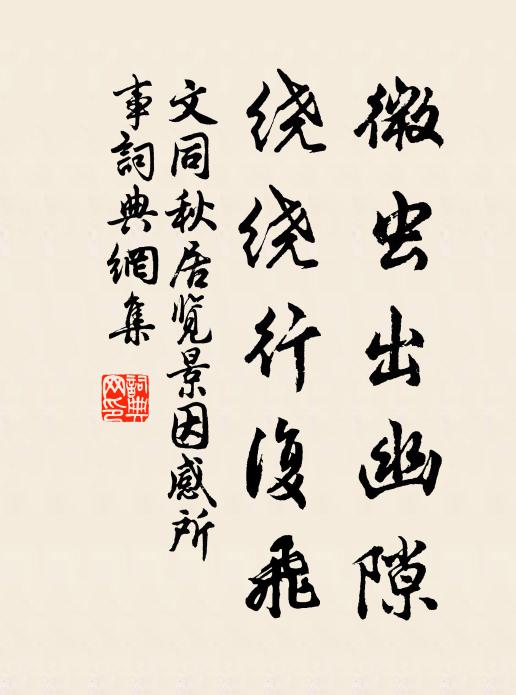 微虫出幽隙
绕绕行復飛
文同秋居览景因感所
事詞典網集
詞典网印